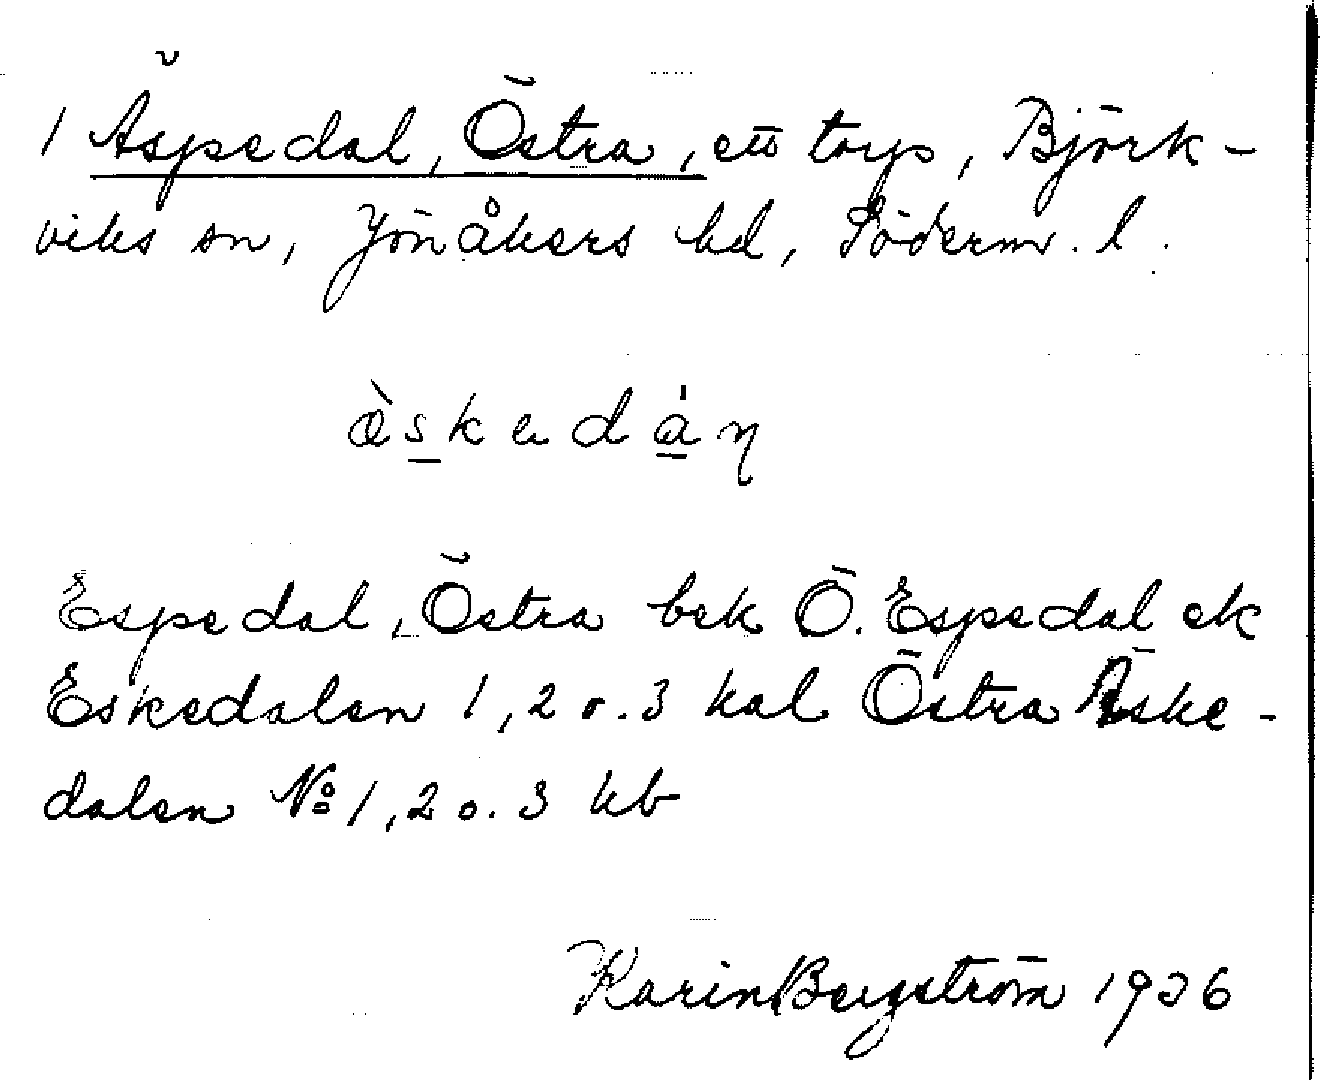 1 Äspedal, Östra, ett torp, Björk-
viks sn, Jönåkers hd, Söderm. l.
æ̀skedáη
Espedal, Östra bek Ö. Espedal ek
Eskedalen 1, 2 o. 3 kal Östra Äske-
dalen No 1, 2 o. 3 kb
Karin Bergström 1936